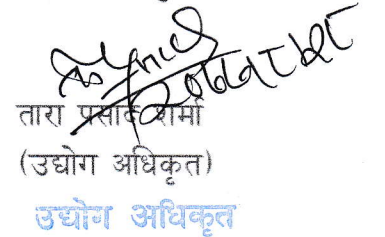 तारा प्रसाद शर्मा
(उद्योग अधिकृत)
उद्योग अधिकृत